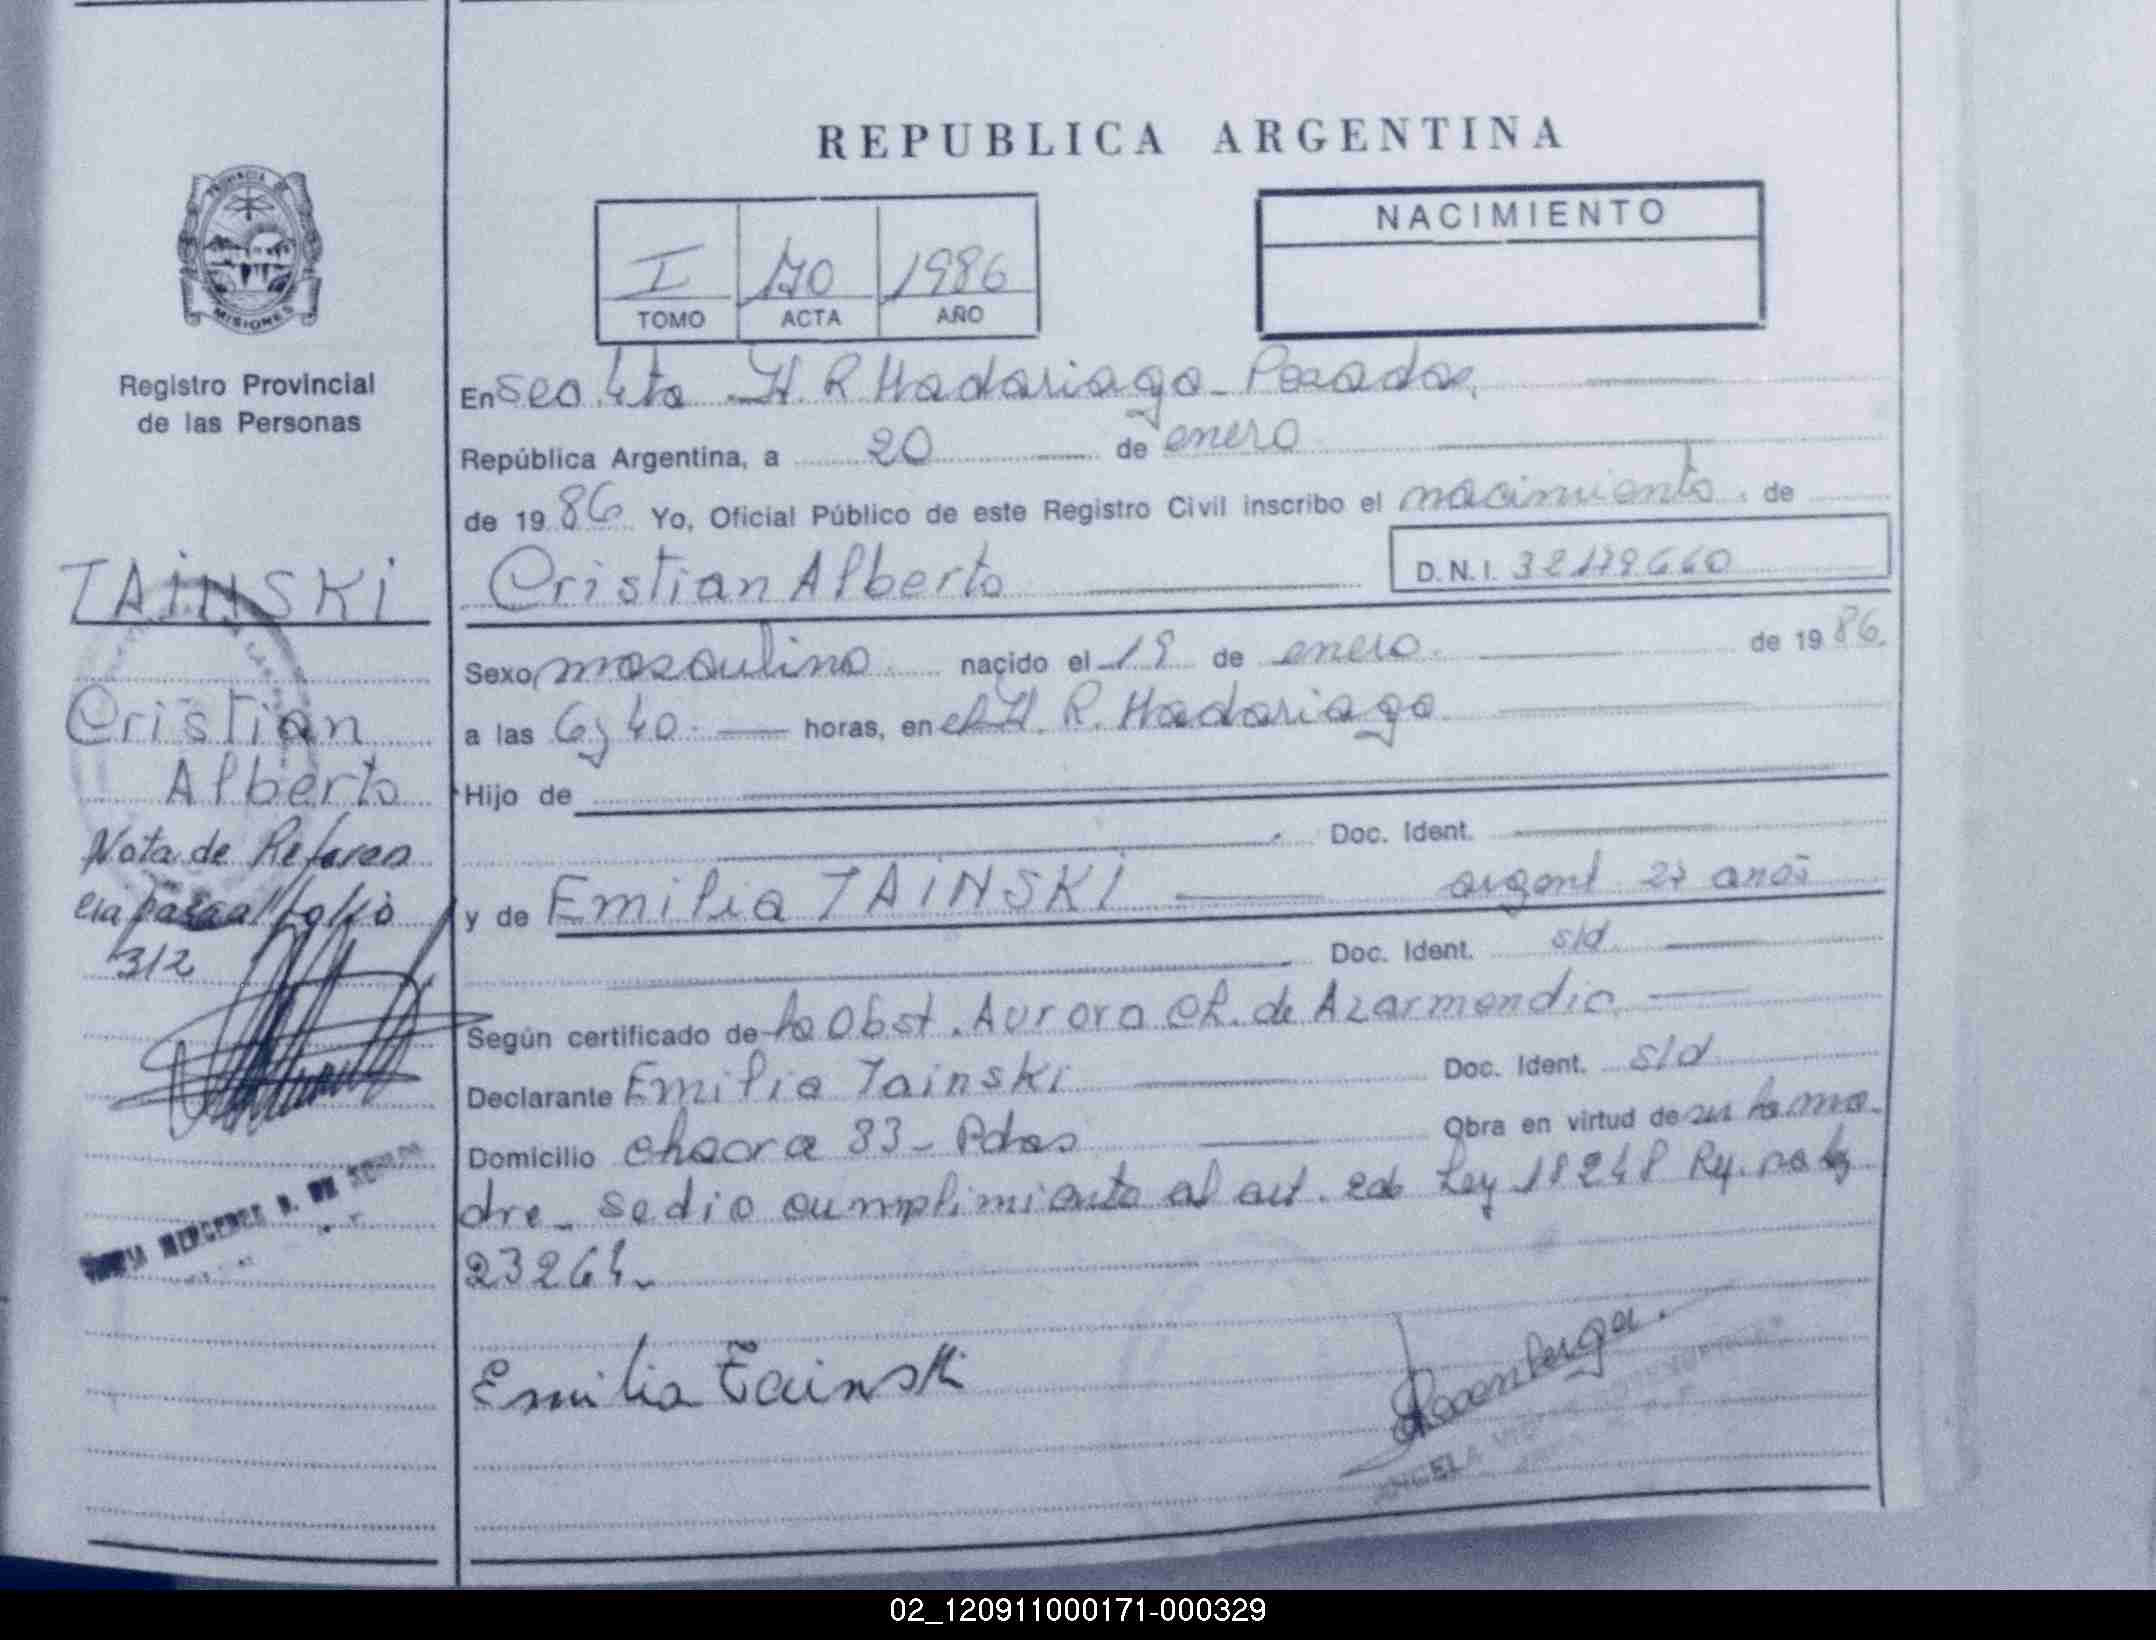 REPUBLICA ARGENTINA
PROVINCIA DE
MISIONES
Registro Provincial
de las Personas
I 170 1986
TOMO ACTA AÑO
NACIMIENTO
En Sec 4ta H. R Madariaga - Posadas,
República Argentina, a 20 de enero
de 1986 Yo, Oficial Público de este Registro Civil inscribo el nacimiento de
Cristian Alberto D.N.I.
Sexo masculino nacido el 19 de enero de 1986.
a las 6 y 40 horas, en el H. R. Madariaga
Hijo de
Doc. Ident.
y de Emilia TAINSKI argent años
Doc. Ident. s/d
Según certificado de la Obst. Aurora Ch. de Azarmendia
Declarante Emilia Tainski Doc. Ident. s/d
Domicilio chacra 83 - Pdas Obra en virtud de ser la ma-
dre - Se dio cumplimiento al art. Ley 18248
23264-
Emilia Tainski
TAINSKI
Cristian
Alberto
Nota de Referen
cia pasa al folio
312
MERCEDES DE
ANGELA
02_120911000171-000329